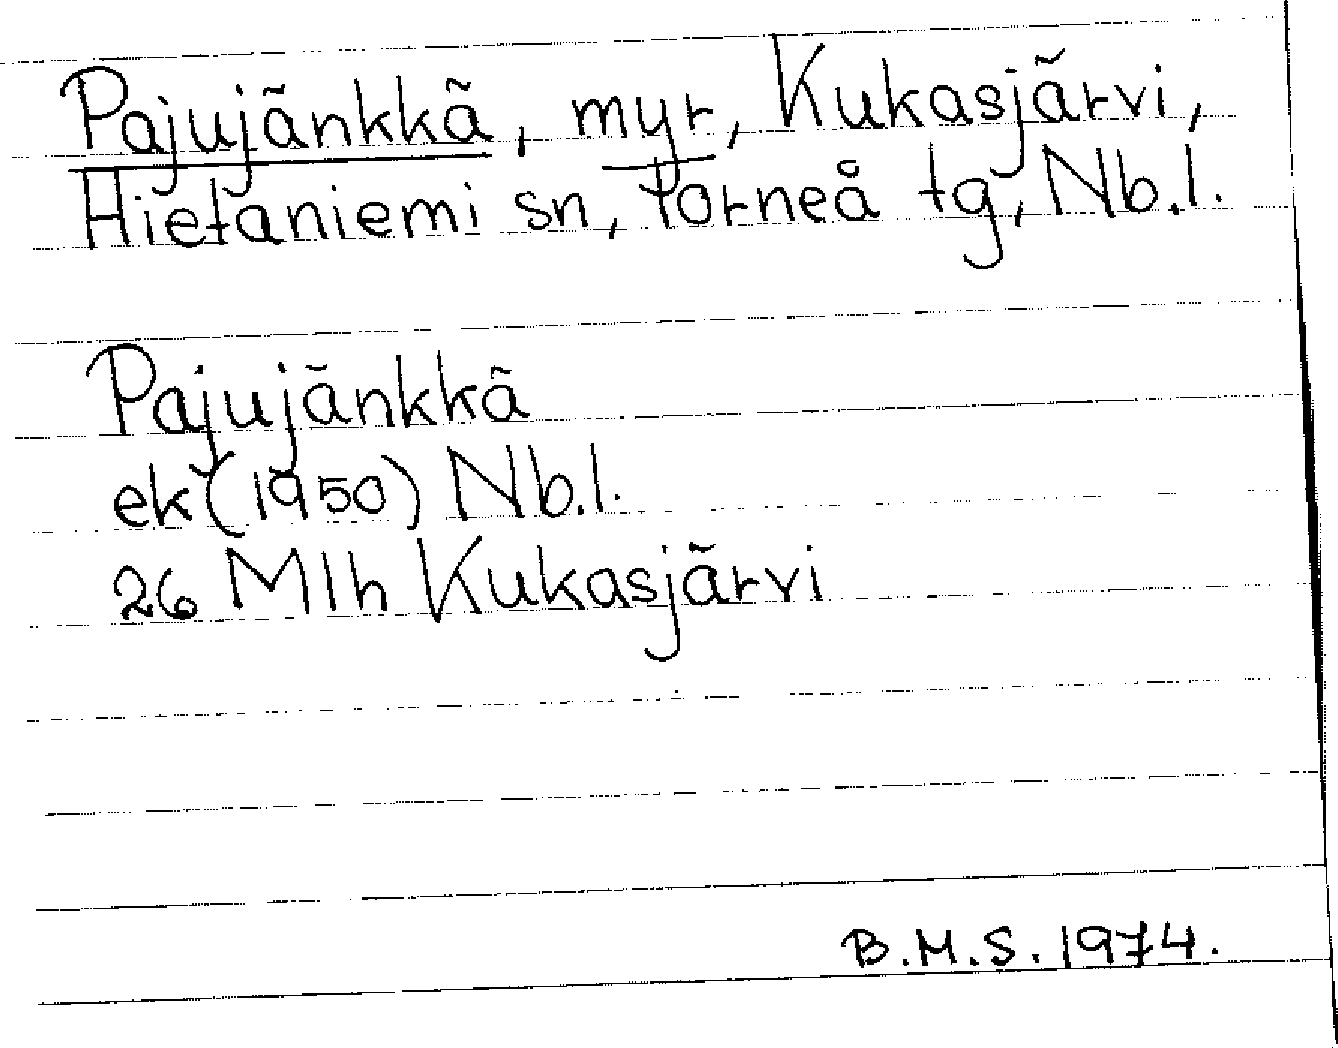 Pajujänkkä, myr, Kukasjärvi,
Hietaniemi sn, Torneå tg, Nb.l.
Pajujänkkä
ek (1950) Nb.l.
26 Mlh Kukasjärvi
B.M.S. 1974.